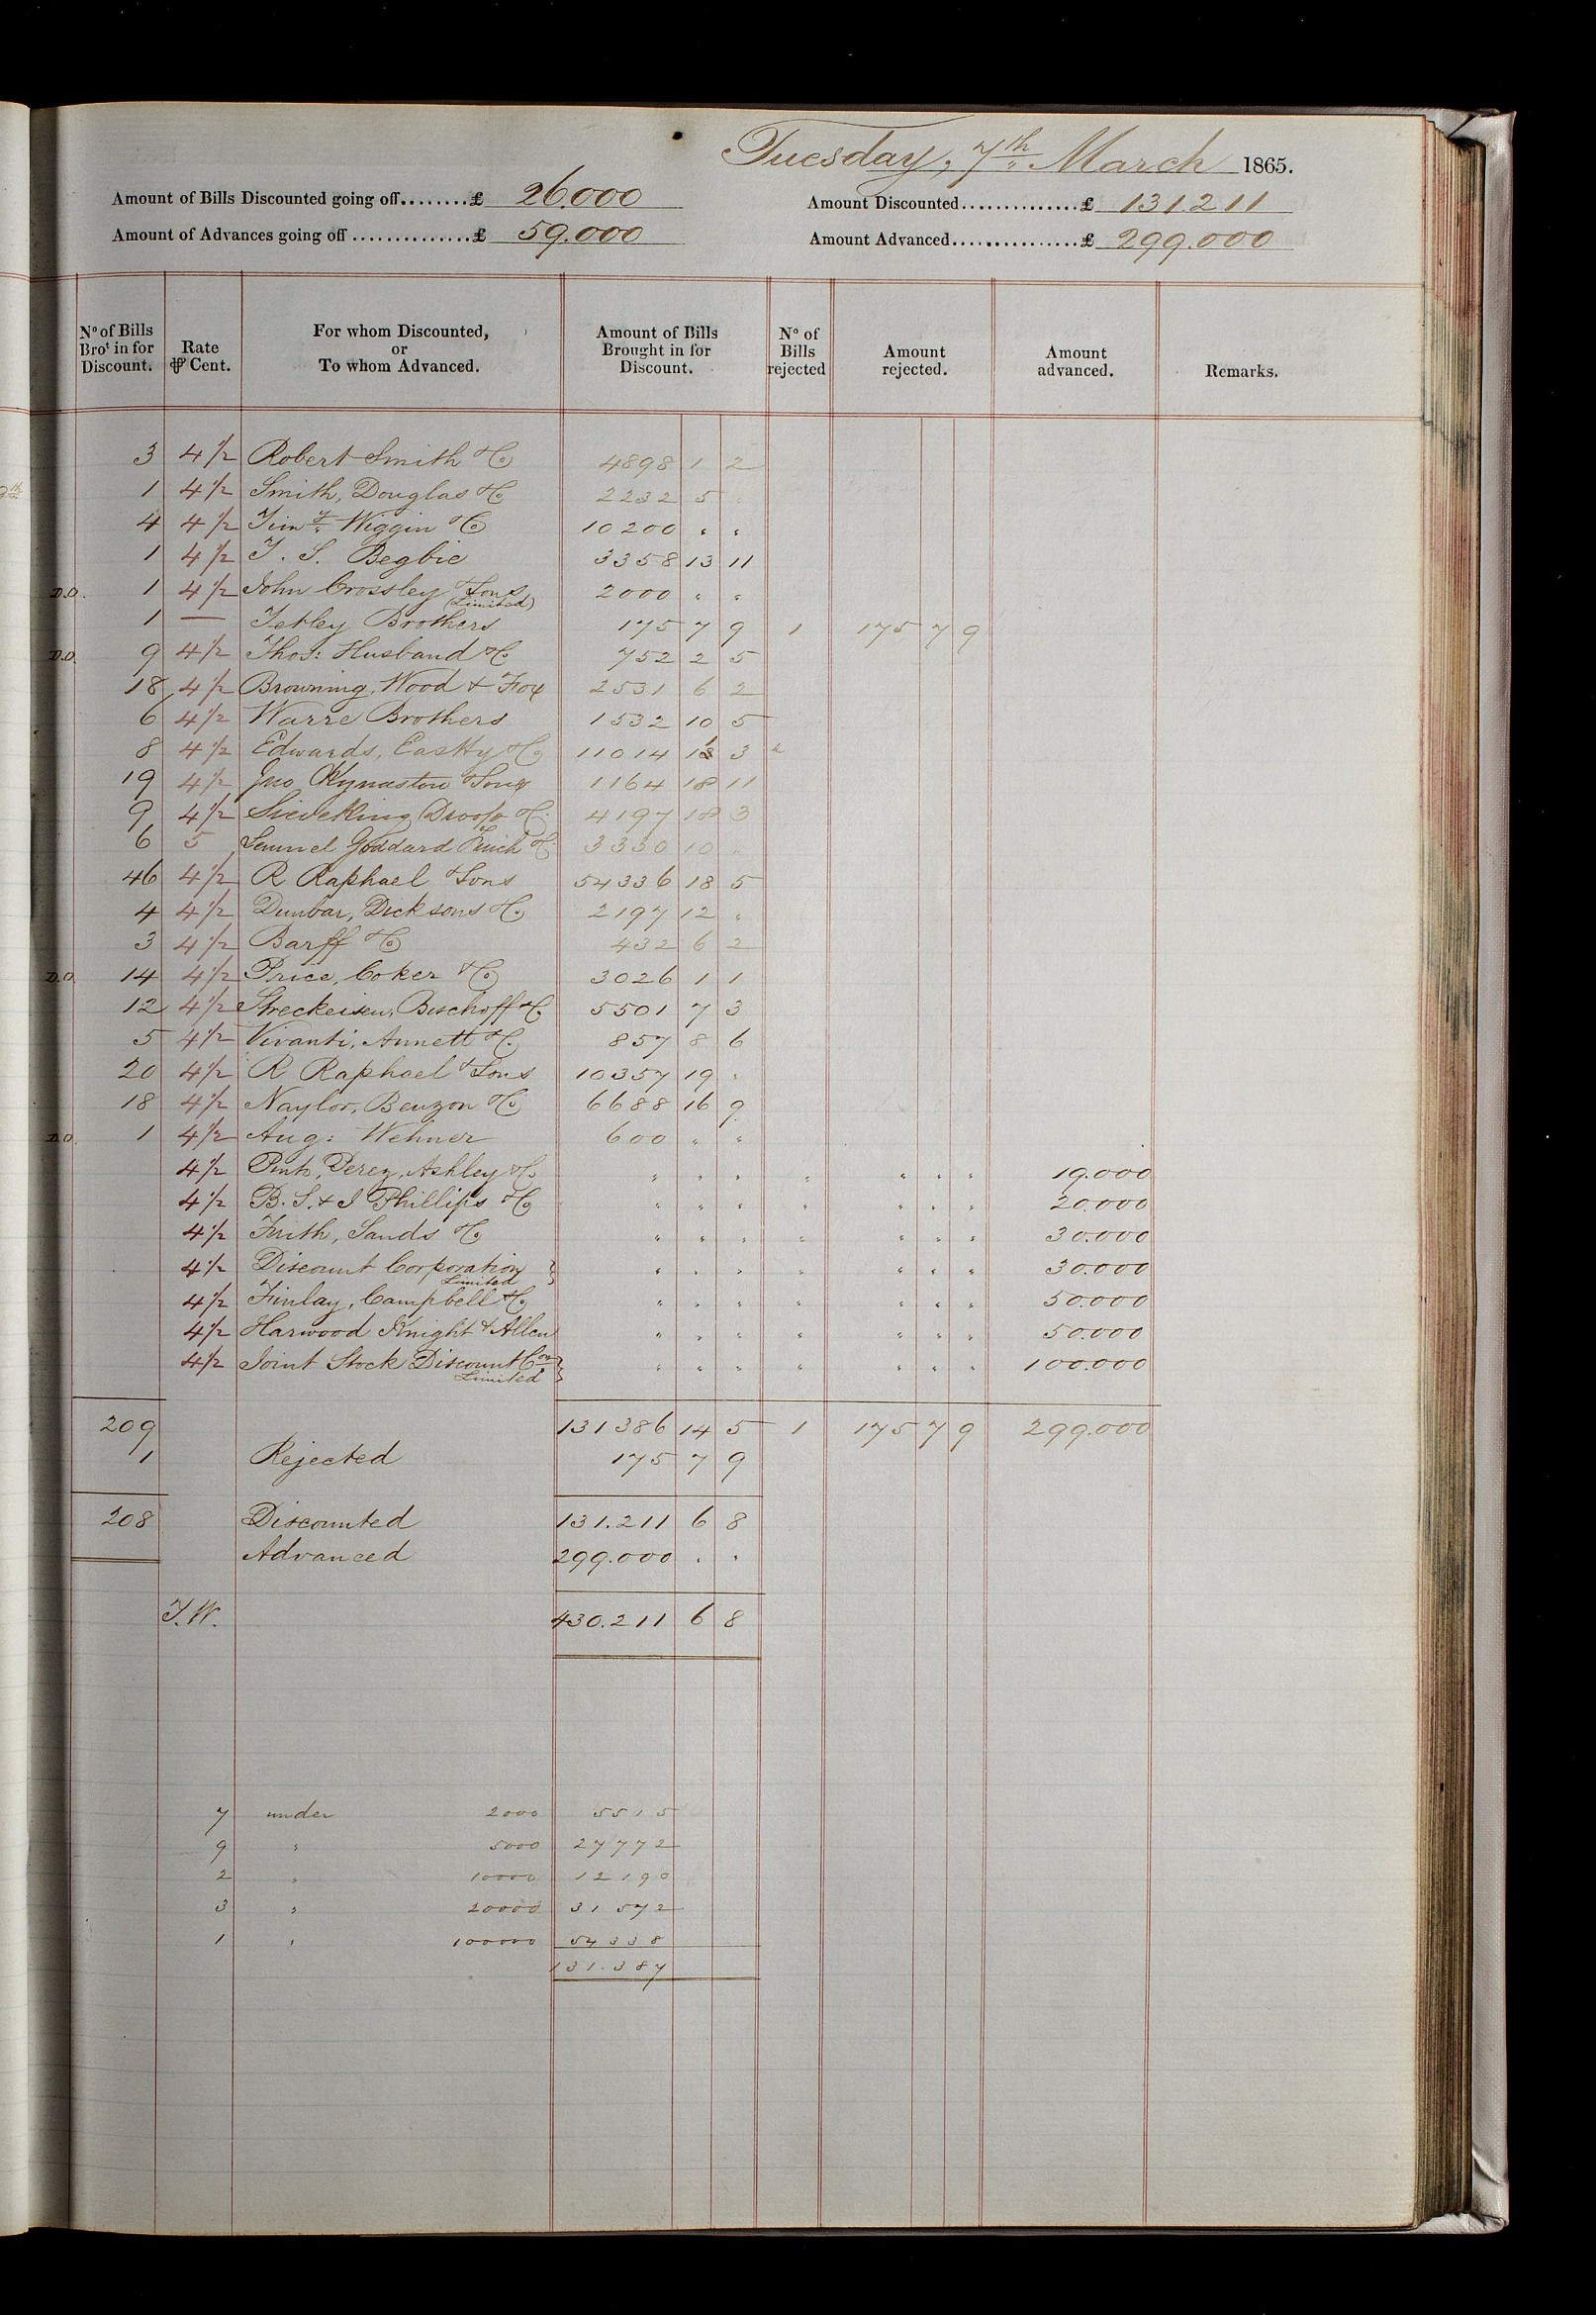 Tuesday, 7th March 1865.
Amount of Bills Discounted going off........£ 26.000
Amount Discounted..............£ 131.211
Amount of Advances going off...............£ 59.000
Amount Advanced................£ 299.000
No of Bills Brot in for Discount. Rate ⅌ Cent. For whom Discounted, or To whom Advanced. Amount of Bills Brought in for Discount. No of Bills rejected Amount rejected. Amount advanced. Remarks.
3 4½ Robert Smith &Co 4898 1 2
1 4½ Smith, Douglas &Co 2232 5 "
4 4½ Timy Wiggin &Co 10200 " "
1 4½ T. S. Begbie 3358 13 11
D.O. 1 4½ John Crossley &Sons (Limited) 2000 " "
1 — Tetley Brothers 175 7 9 1 175 7 9
D.O. 9 4½ Thos: Husband &Co 752 2 5
18 4½ Browning, Wood & Fox 2531 6 2
6 4½ Warre Brothers 1532 10 5
8 4½ Edwards, Eastty &Co 11014 13 3
19 4½ Jno Kynaston &Sons 1164 18 11
9 4½ Sieveking Droop &Co 4197 18 3
6 5 Samuel Goddard &Co 3330 10 "
46 4½ R Raphael &Sons 54336 18 5
4 4½ Dunbar, Dicksons &Co 2197 12 "
3 4½ Barff &Co 432 6 2
D.O. 14 4½ Price, Coker &Co 3026 1 1
12 4½ Streckeisen, Bischoff &Co 5501 7 3
5 4½ Vivanti, Annett &Co 857 8 6
20 4½ R Raphael &Sons 10357 19 "
18 4½ Naylor, Benzon &Co 6688 16 9
D.O. 1 4½ Aug: Wehner 600 " "
4½ Pinto, Perez, Ashley &Co " " " " " " " 19.000
4½ B. S. & I Phillips &Co " " " " " " " 20.000
4½ Frith, Sands &Co " " " " " " " 30.000
4½ Discount Corporation Limited " " " " " " " 30.000
4½ Finlay, Campbell &Co " " " " " " " 50.000
4½ Harwood Knight & Allen " " " " " " " 50.000
4½ Joint Stock Discount Con Limited " " " " " " " 100.000
209 131386 14 5 1 175 7 9 299.000
1 Rejected 175 7 9
208 Discounted 131.211 6 8
Advanced 299.000 " "
T.W. 430.211 6 8
7 under 2000 5515
9 " 5000 27772
2 " 10000 12190
3 " 20000 31572
1 " 100000 54338
131.387